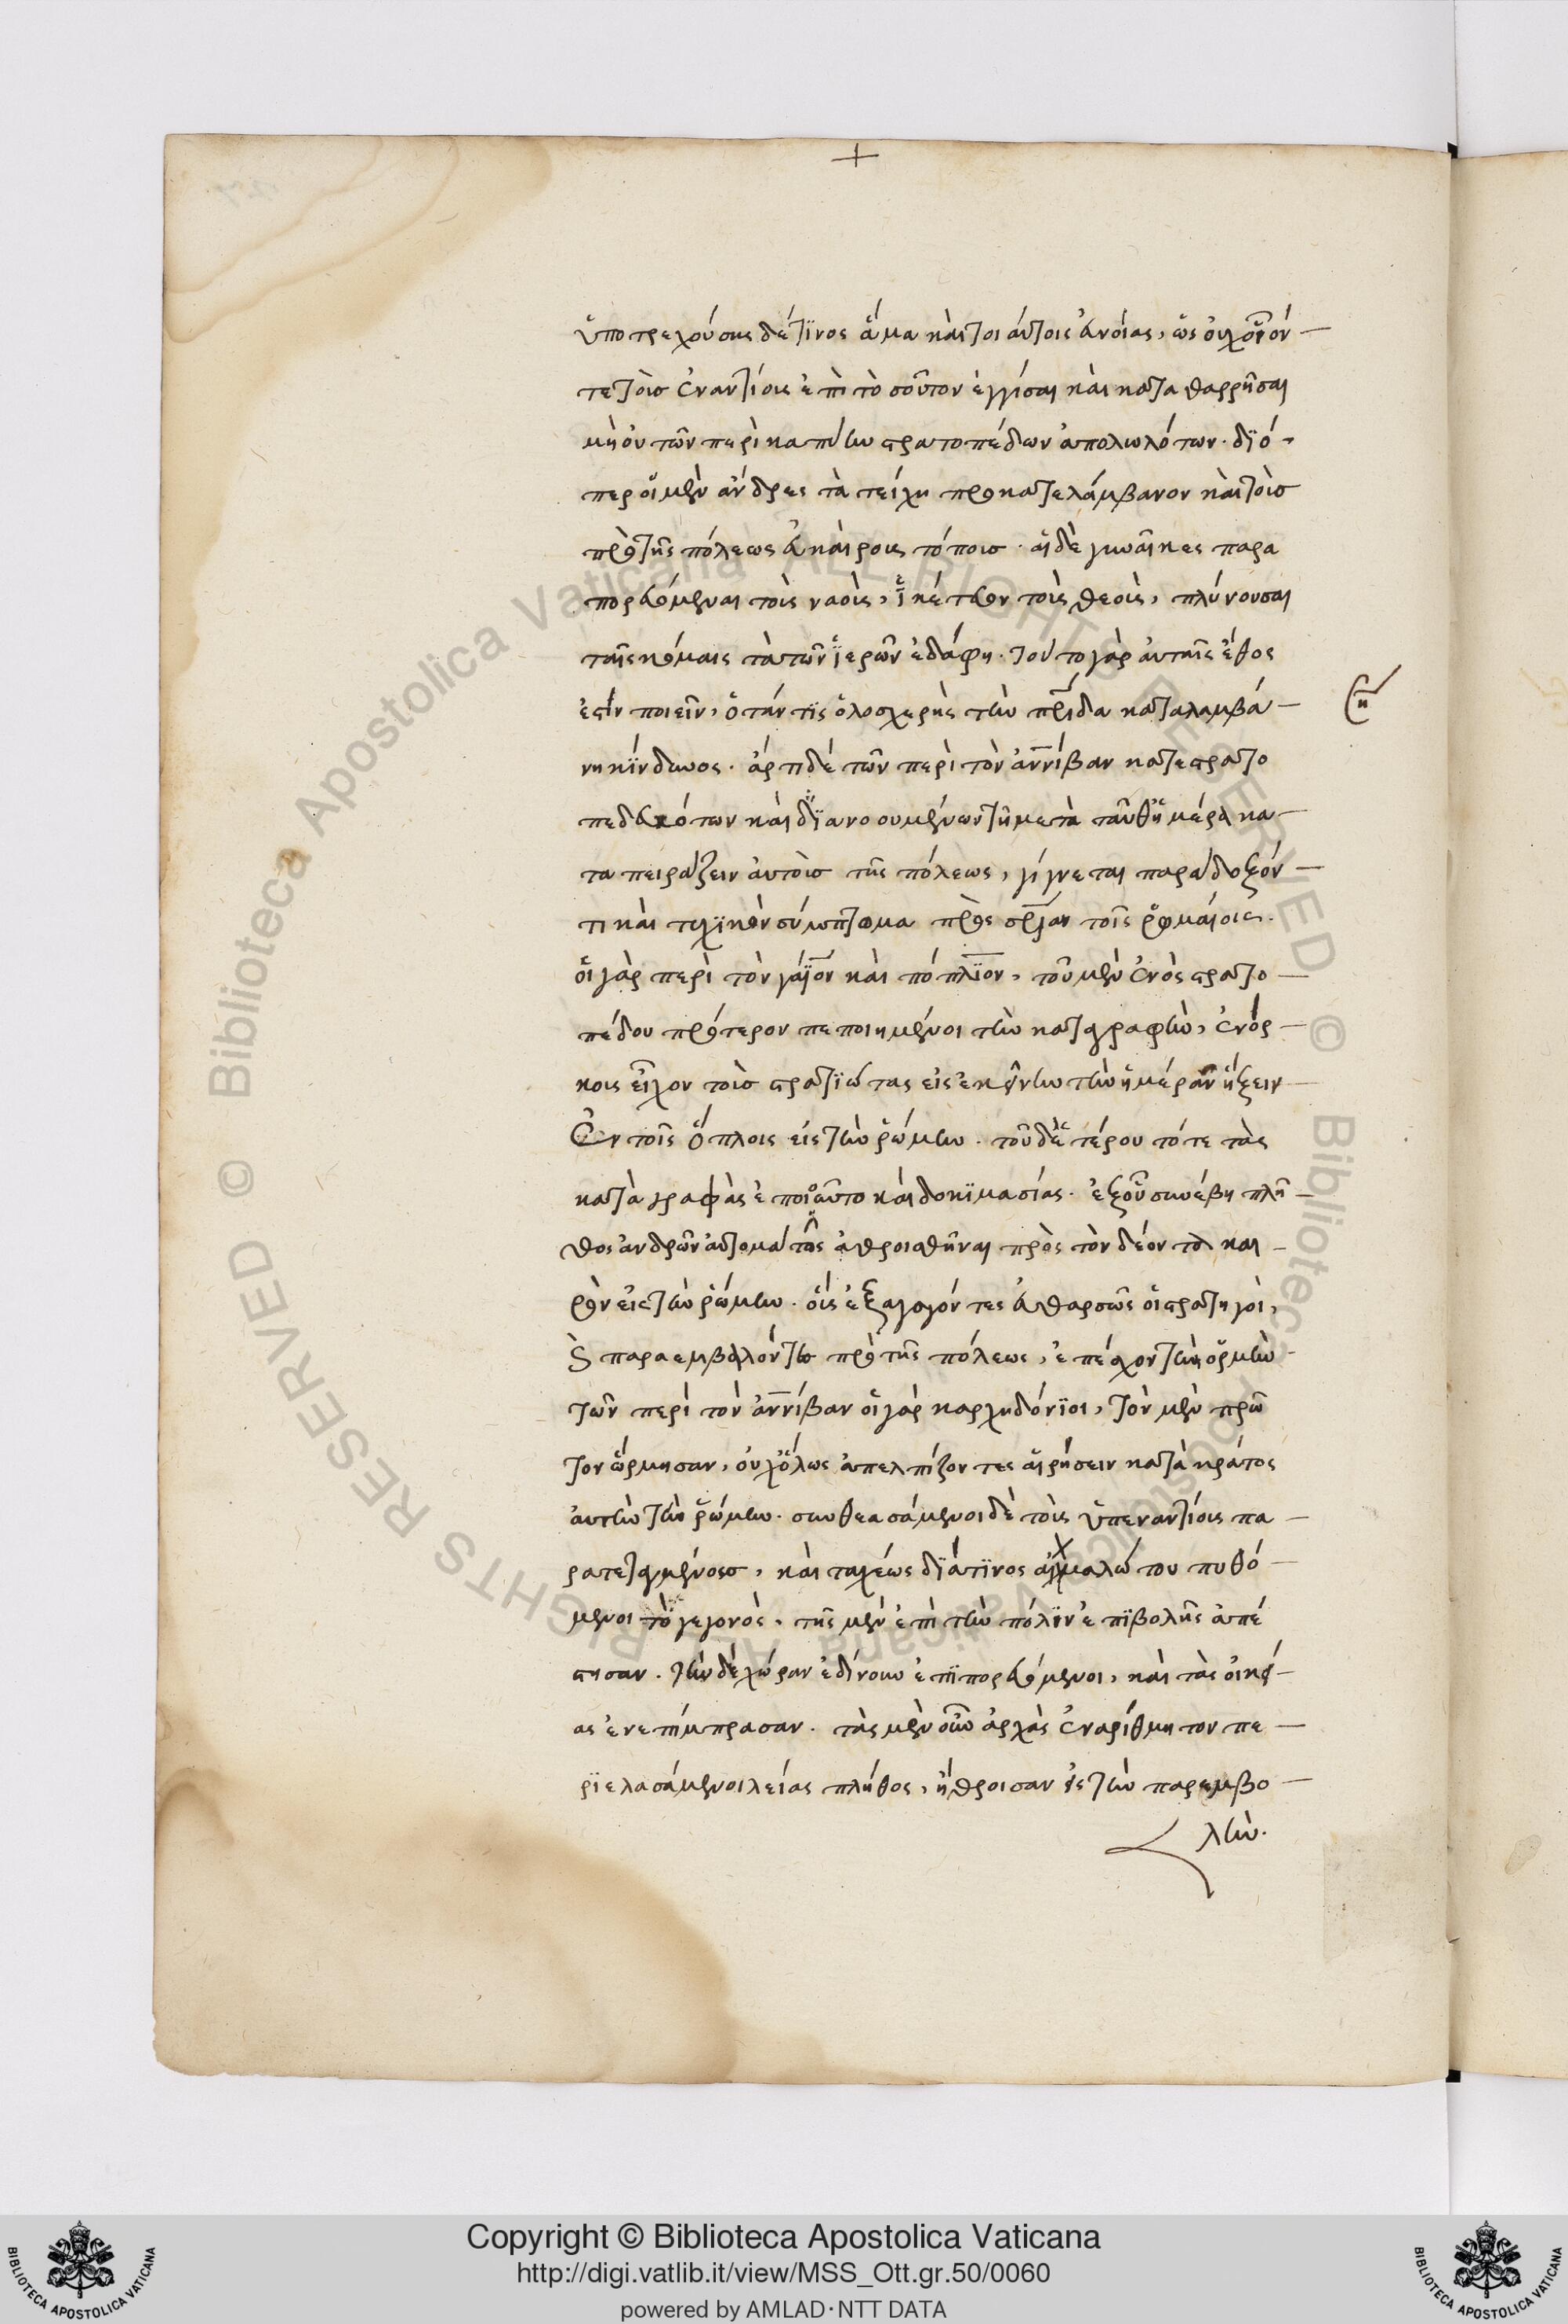 ὑποτρεχούσης δέ τινος ἅμα καὶ τοιαύτης ἐννοίας, ὡς οὐχ οἷόν
τε τοῖς ἐναντίοις ἐπὶ τὸ σοῦτον ἐγγίσαι καὶ καταθαρρῆσαι
μὴ οὐ τῶν περὶ καπύην στρατοπέδων ἀπολωλότων. διό
περ οἱ μὲν ἄνδρες τὰ τείχη προκατελάμβανον καὶ τοὺσ
πρὸ τῆς πόλεως εὐκαίρους τόπουσ. αἱ δὲ γυναῖκες παρα
πορευόμεναι τοὺς ναοὺς, ἱκέτευον τοὺς θεοὺς, πλύνουσαι
ταῖς κόμαις τὰ τῶν ἱερῶν ἐδάφη. τοῦτο γὰρ αὐταῖς ἔθος
ἐστὶν ποιεῖν, ὅταν τις ὁλοσχερὴς τὴν πρίδα καταλαμβά
νη κίνδυνος. ἄρτι δὲ τῶν περὶ τὸν ἀννίβαν κατεστρατο
πεδευκότων καὶ διανοουμένων τῆ μετὰ ταῦθ' ἡμέρα κα
ταπειράζειν αὐτῆσ τῆς πόλεως, γίγνεται παράδοξόν
τι καὶ τυχικὸν σύμπτωμα πρὸς σρίαν τοῖς ῥωμαίοις.
οἱ γὰρ περὶ τὸν γάϊον καὶ πόπλϊον, τοῦ μὲν ἑνὸς στρατο
πέδου πρότερον πεποιημένοι τὴν καταγραφὴν, ἐνόρ
κους εἶχον τοὺσ στρατϊώτας εἰς ἐκείνην τὴν ἡμέραν ἥξειν
ἐν τοῖς ὅπλοις εἰς τὴν ῥώμην. τοῦ δὲ ἑτέρου τότε τὰς
καταγραφὰς ἐποιοῦντο καὶ δοκϊμασίας. ἐξ οὗ συνέβη πλῆ
θος ἀνδρῶν αὐτομάτως ἀθροισθῆναι πρὸς τὸν δέοντα και
ρὸν εἰς τὴν ῥώμην. οὓς ἐξαγαγόντες εὐθαρσῶς οἱ στρατηγοὶ,
καὶ παρεμβαλόντες πρὸ τῆς πόλεως, ἐπέσχον τὴν ὁρμὴν
τῶν περὶ τὸν ἀννίβαν οἱ γὰρ καρχηδόνϊοι, τὸν μὲν πρῶ
τον ὥρμησαν, οὐχ ὅλως ἀπελπίζοντες αἱρήσειν κατὰ κράτος
αὐτὴν τὴν ῥώμην. συνθεασάμενοι δὲ τοὺς ὑπεναντίους πα
ρατεταγμένουσ, καὶ ταχέως διά τινος αἰχμαλώτου πυθό
μενοι τὸ γεγονὸς, τῆς μὲν ἐπὶ τὴν πόλιν ἐπιβολῆς ἀπέ
στησαν. τὴν δὲ χώραν ἐδίνουν ἐπιπορευόμενοι, καὶ τὰς οἰκεί
ας ἐνεπίμπρασαν. τὰς μὲν οὖν ἀρχὰς ἐναρίθμητον πε
ρϊελασάμενοι λείας πλῆθος, ἤθροισαν εἰς τὴν παρεμβο
λήν.
Copyright © Biblioteca Apostolica Vaticana
http://digi.vatlib.it/view/MSS_Ott.gr.50/0060
powered by AMLAD·NTT DATA